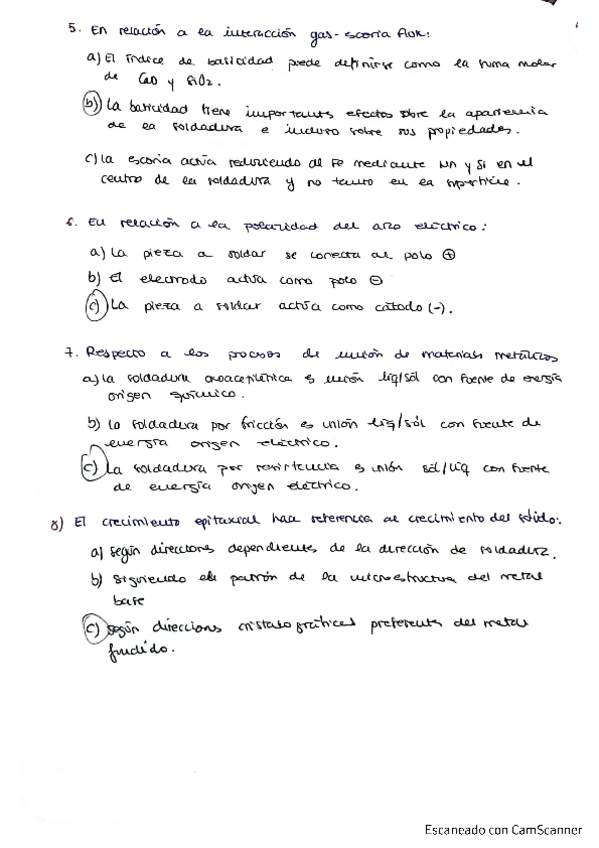 5. En relación a la interacción gas-escoria flux:
a) El índice de basicidad puede definirse como la suma molar
de CaO y SiO2.
b) La basicidad tiene importantes efectos sobre la apariencia
de la soldadura e incluso sobre sus propiedades.
c) La escoria actúa reduciendo al Fe mediante Mn y Si en el
centro de la soldadura y no tanto en la superficie.
6. En relación a la polaridad del arco eléctrico:
a) La pieza a soldar se conecta al polo +
b) El electrodo actúa como polo -
c) La pieza a soldar actúa como cátodo (-).
7. Respecto a los procesos de unión de materiales metálicos
a) La soldadura oxoacetilénica es unión liq/sól con fuente de energía
origen químico.
b) la soldadura por fricción es unión liq/sól con fuente de
energía origen eléctrico.
c) La soldadura por resistencia es unión sól/liq con fuente
de energía origen eléctrico.
8) El crecimiento epitaxial hace referencia al crecimiento del sólido:
a) según direcciones dependientes de la dirección de soldadura.
b) siguiendo el patrón de la microestructura del metal
base
c) según direcciones cristalográficas preferentes del metal
fundido.
Escaneado con CamScanner